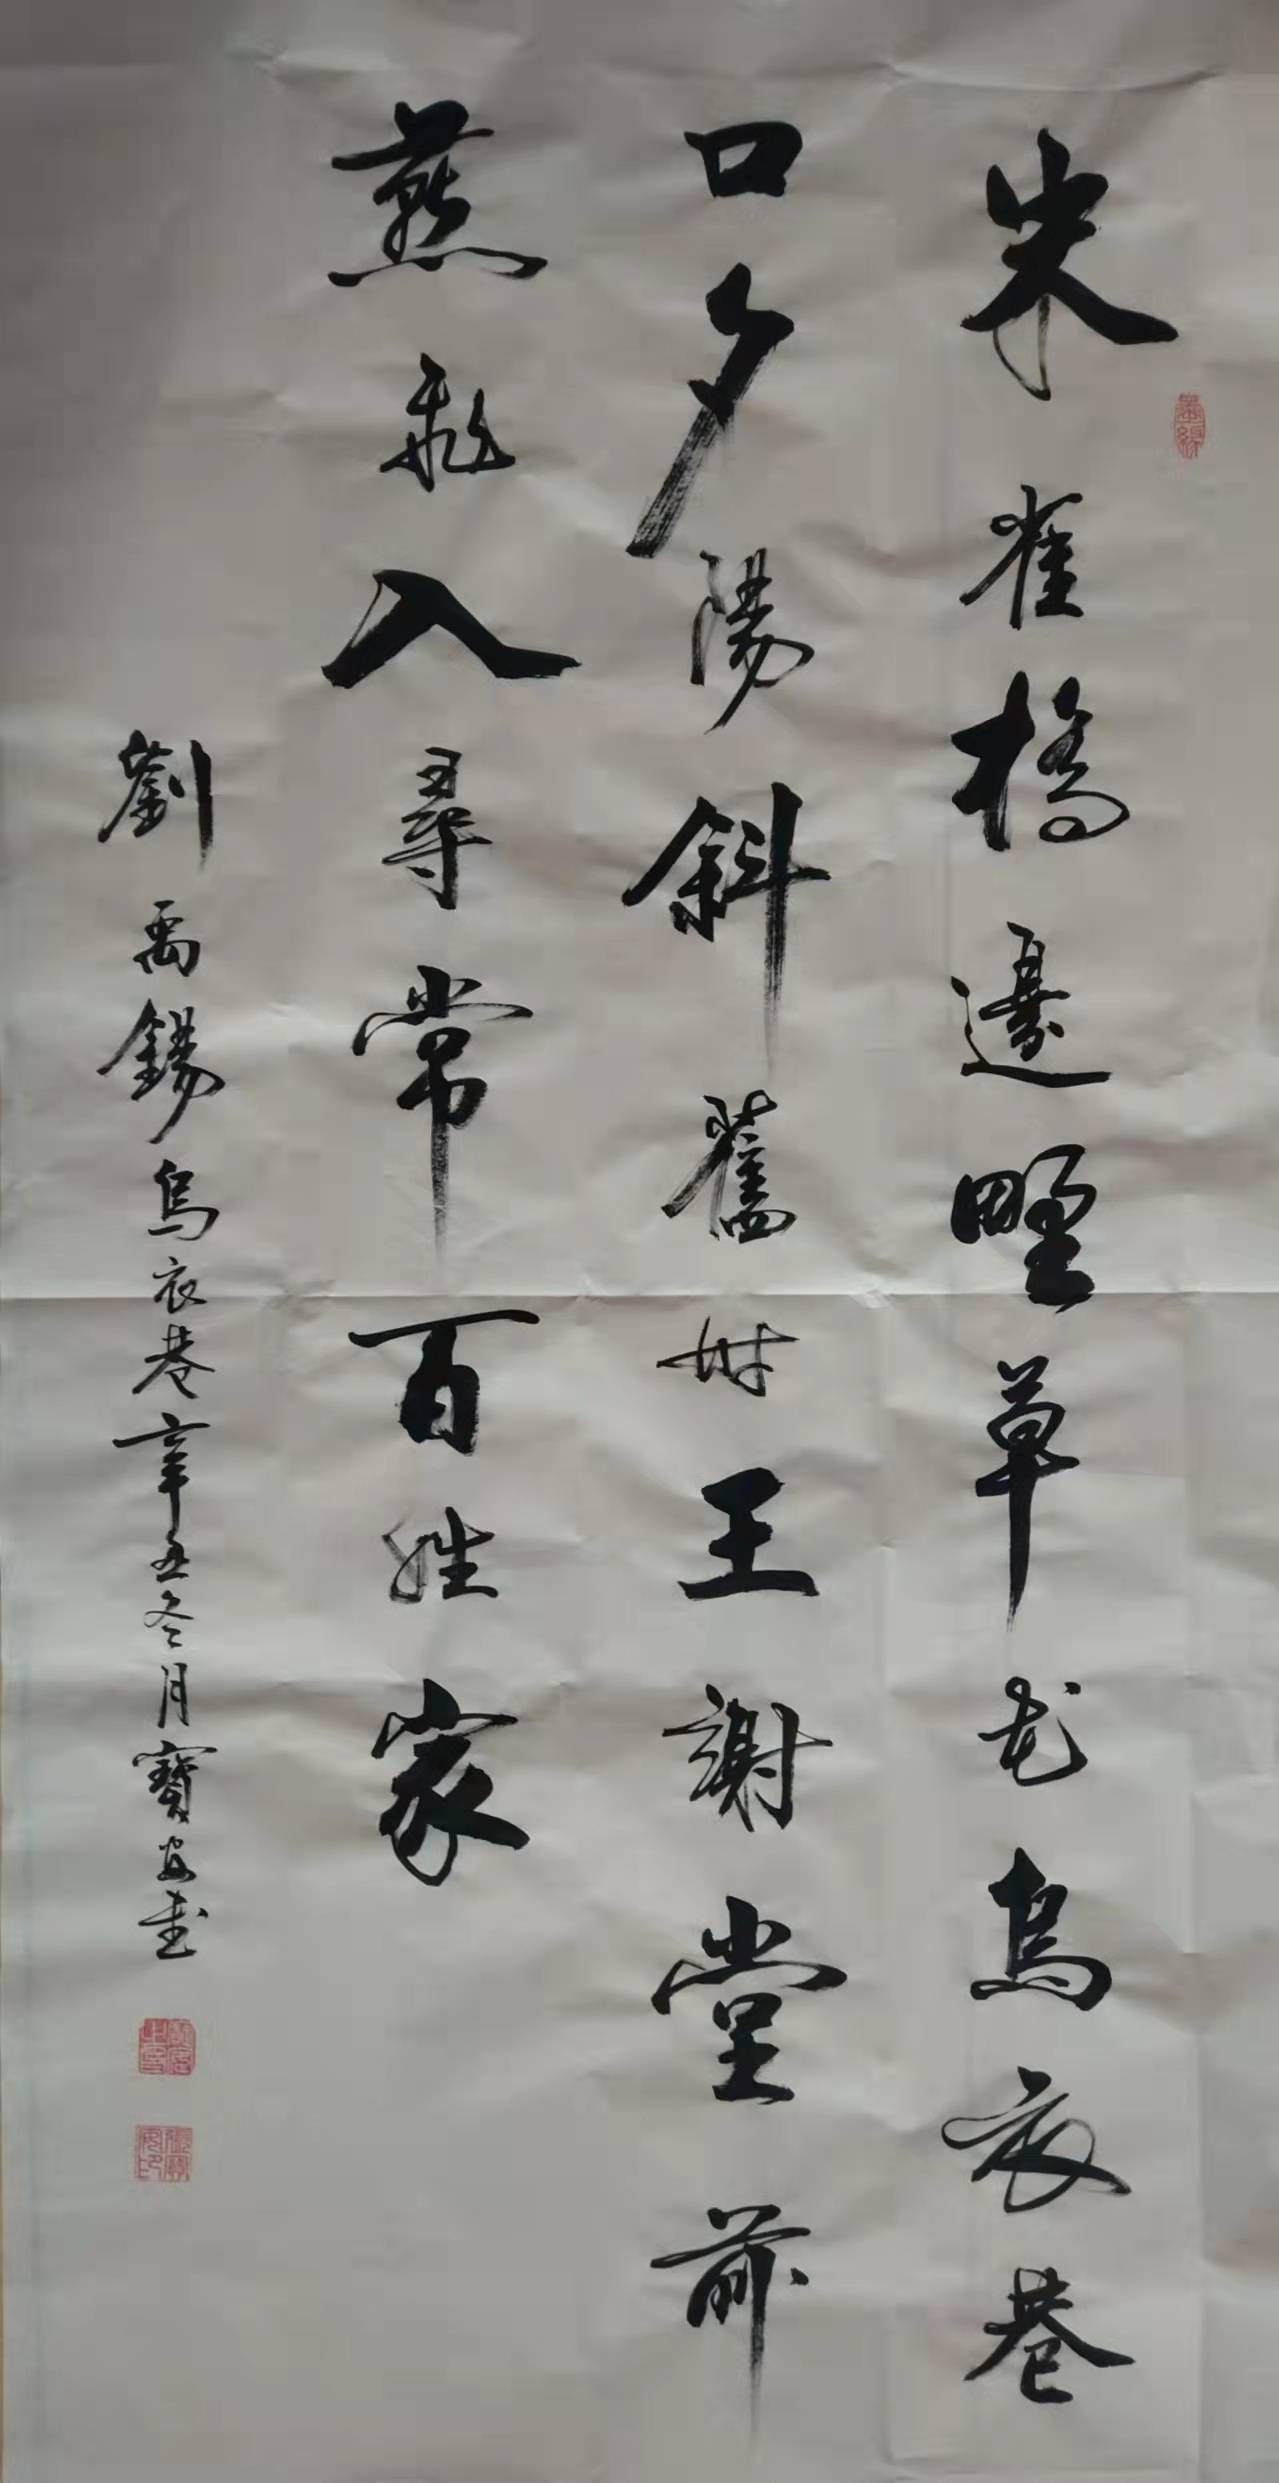 朱雀橋邊野草花烏衣巷
口夕陽斜舊時王謝堂前
燕飛入尋常百姓家
劉禹錫烏衣巷辛丑冬月寶安書